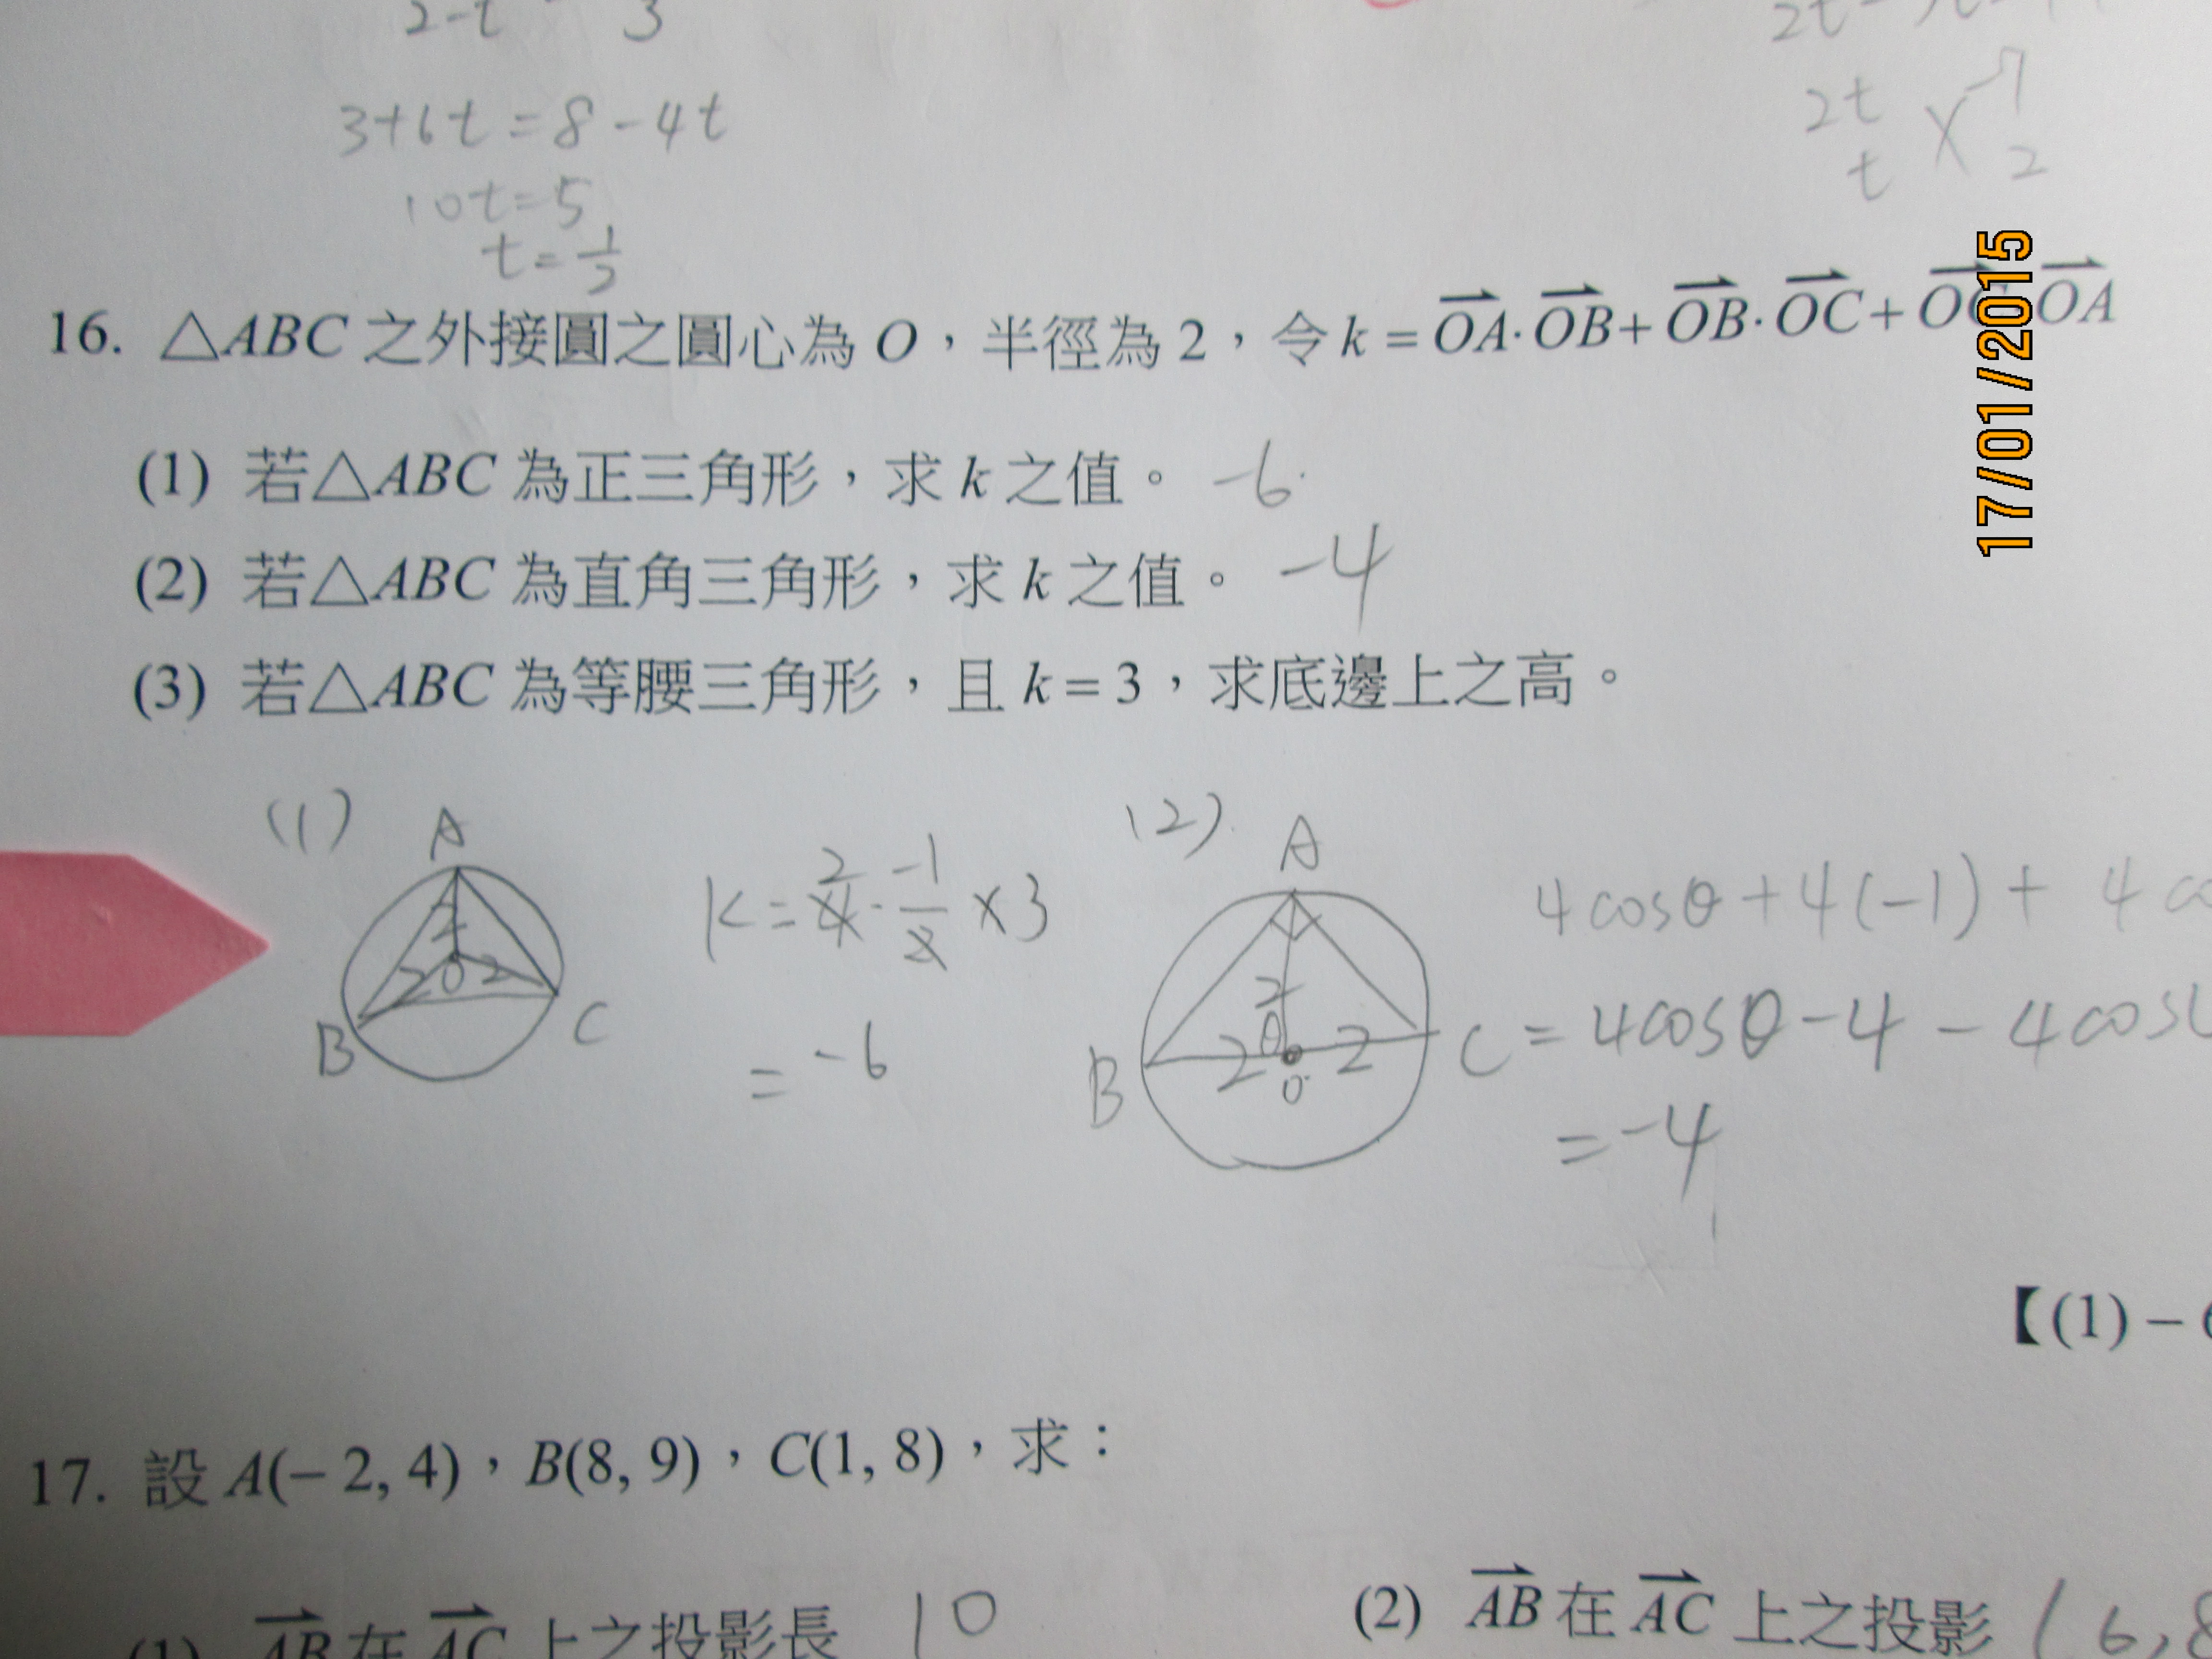 2-t 3
3+6t=8-4t
10t=5
t=1/2
2t -7
t 2
16. △ABC 之外接圓之圓心為 O，半徑為 2，令 k = OA·OB + OB·OC + OC·OA
17/01/2015
(1) 若△ABC 為正三角形，求 k 之值。 -6
(2) 若△ABC 為直角三角形，求 k 之值。 -4
(3) 若△ABC 為等腰三角形，且 k = 3，求底邊上之高。
(1)
A
2
2 O 2
B C
k = 4 · -1/2 × 3
2
= -6
(2)
A
2
θ
2 2
B O C
4cosθ + 4(-1) + 4
= 4cosθ - 4 - 4cos
= -4
【(1) – 6
17. 設 A(– 2, 4)，B(8, 9)，C(1, 8)，求：
(1) AB 在 AC 上之投影長 10
(2) AB 在 AC 上之投影 (6,8